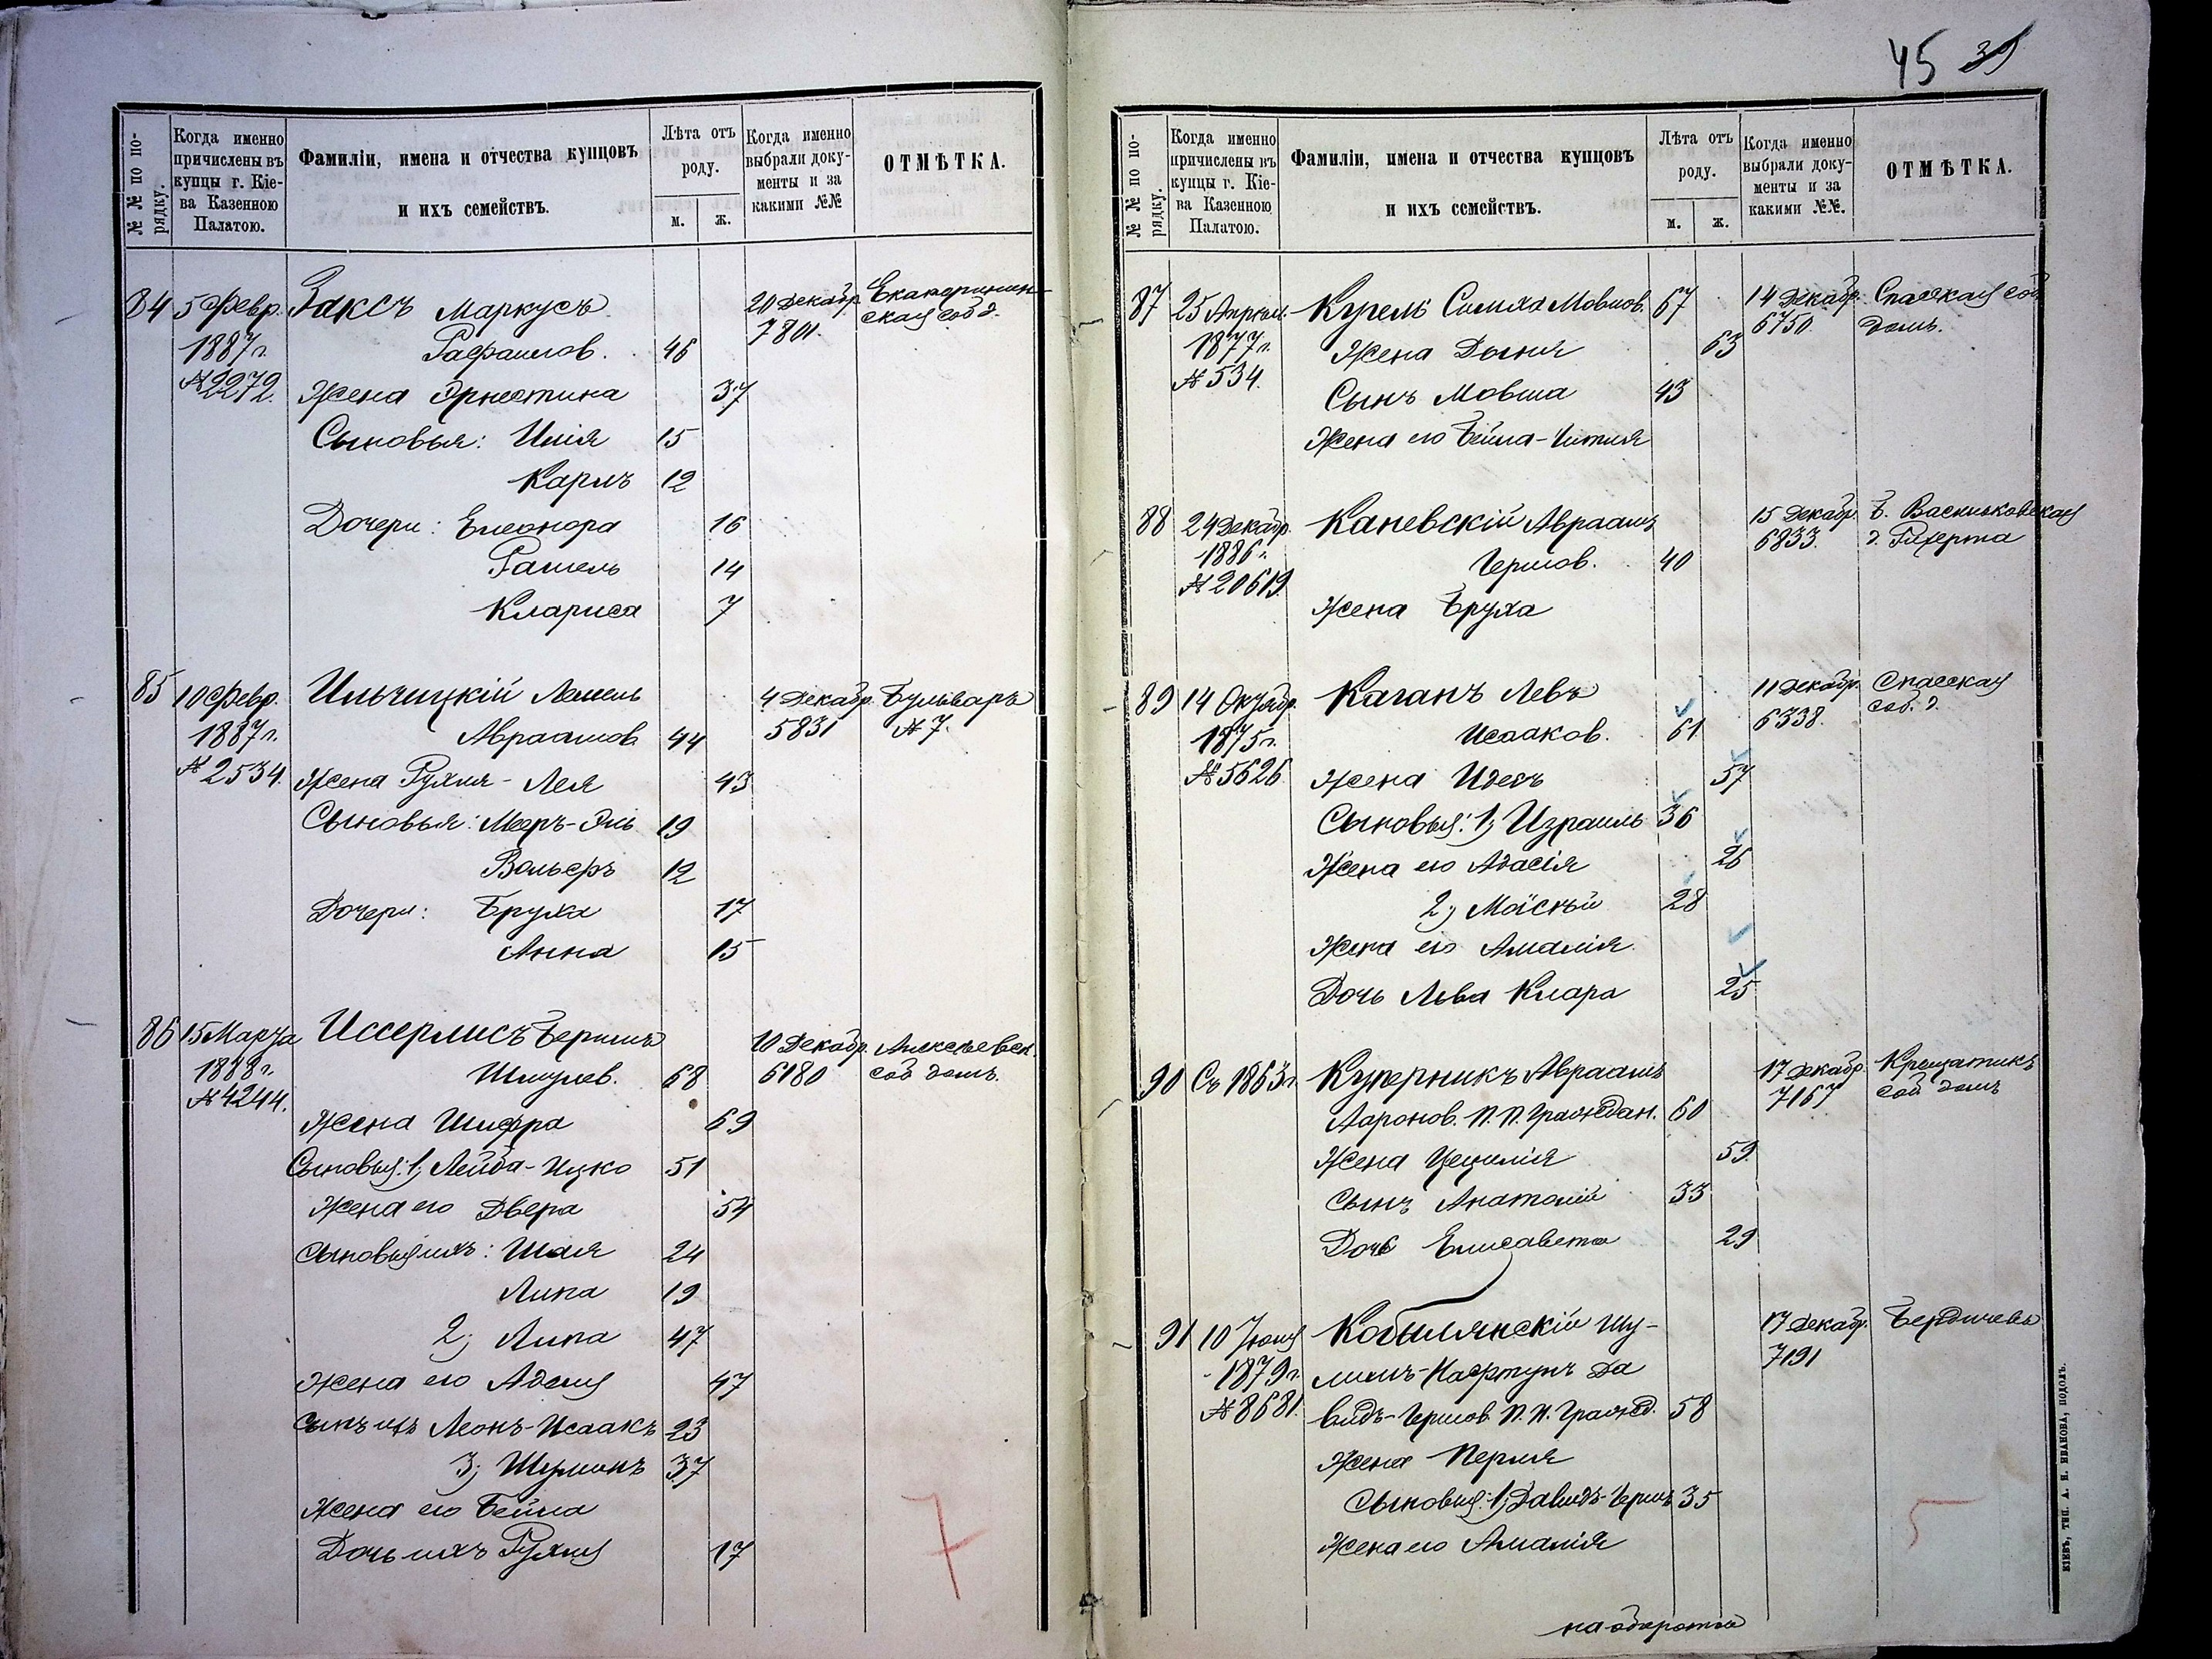 45 39
№№ по порядку.
Когда именно причислены въ купцы г. Кіева Казенною Палатою.
Фамиліи, имена и отчества купцовъ и ихъ семействъ.
Лѣта отъ роду.
м. ж.
Когда именно выбрали документы и за какими №№
ОТМѢТКА.
84 5 Февр. Заксъ Маркусъ 20 Декабр. Екатеринин-
1887 г. Рафаилов. 46 7801. ская соб д.
№ 2272. Жена Эрнестина 37
Сыновья: Илія 15
Карлъ 12
Дочери: Елеонора 16
Рашель 14
Клариса 7
85 10 Февр. Ильчицкій Лемель 4 Декабр. Бульваръ
1887 г. Авраамов. 44 5831 № 7.
№ 2534. Жена Рухля-Лея 43
Сыновья: Мееръ-Эль 19
Вольфъ 12
Дочери: Бруха 17
Анна 15
86 15 Марта Иссерлисъ Бериш 10 Декабр. Алексѣевск.
1888 г. Шмулев. 68 6180 соб домъ.
№ 4244. Жена Шифра 69
Сыновья: 1, Лейба-Ицко 51
Жена его Двера 54
Сыновья ихъ: Шая 24
Липа 19
2, Липа 47
Жена его Аделя 47
Сынъ ихъ Леонъ-Исаакъ 23
3, Шулимъ 37
Жена его Бейла
Дочь ихъ Рухля 17
7
№№ по порядку.
Когда именно причислены въ купцы г. Кіева Казенною Палатою.
Фамиліи, имена и отчества купцовъ и ихъ семействъ.
Лѣта отъ роду.
м. ж.
Когда именно выбрали документы и за какими №№.
ОТМѢТКА.
87 25 Апрѣл. Купель Симха Мовшов. 67 14 Декабр. Спасская соб
1877 г. Жена Дыня 63 6750. домъ.
№ 534. Сынъ Мовша 43
Жена его Бейла-Гитля
88 24 Декабр. Каневскій Авраамъ 15 Декабр. Б. Васильковская
1886 г. Гершов. 40 6833. д.
№ 20619. Жена Бруха
89 14 Октябр. Каганъ Левъ 11 Декабр. Спасская
1875 г. Исааков. 61 6338. соб. д.
№ 5626 Жена Идесъ 57
Сыновья: 1, Израиль 36
Жена его Адасія 26
2, Моисѣй 28
Жена его Амалія
Дочь Льва Клара 25
90 Съ 1863 г. Куперникъ Авраамъ 17 Декабр. Крещатикъ
Ааронов. П. П. Граждан. 60 7167 соб домъ
Жена Цецилія 59
Сынъ Анатолій 33
Дочь Елисавета 29
91 10 Іюля Кобылянскій Шу- 17 Декабр. Бердичевъ
1879 г. лимъ-Нафтулъ Да 7191
№ 8681. видъ-Гершов. П. П. Гражд. 58
Жена Перля
Сыновья: 1, Давидъ-Гершъ 35
Жена его Амалія
5
на оборотѣ
КІЕВЪ, ТИП. А. Н. ИВАНОВА, ПОДОЛЪ.